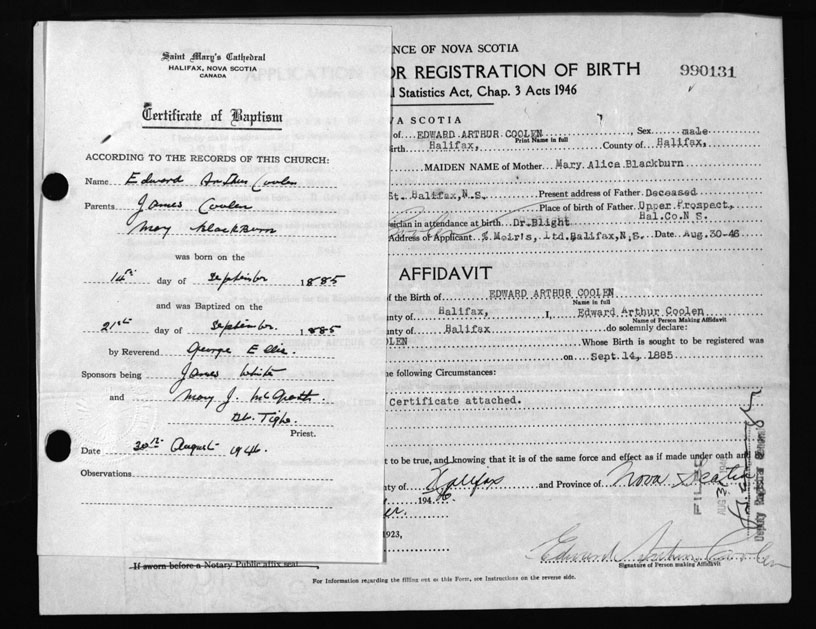 Saint Mary's Cathedral
HALIFAX, NOVA SCOTIA
CANADA
Certificate of Baptism
ACCORDING TO THE RECORDS OF THIS CHURCH:
Name Edward Arthur Coolen
Parents James Coolen
Mary Blackburn
was born on the
14th day of September 1885
and was Baptized on the
21st day of September 1885
by Reverend George Ellis.
Sponsors being James White
and Mary J. McGrath
Priest.
Date 30th August 1946.
Observations
NCE OF NOVA SCOTIA
OR REGISTRATION OF BIRTH
990131
l Statistics Act, Chap. 3 Acts 1946
VA SCOTIA
of EDWARD ARTHUR COOLEN, Sex male
Print Name in full
irth Halifax, County of Halifax,
MAIDEN NAME of Mother Mary Alice Blackburn
St. Halifax, N.S. Present address of Father Deceased
Place of birth of Father Upper Prospect,
Hal.Co.N S.
sician in attendance at birth Dr. Blight
Address of Applicant % Moir's, ltd. Halifax, N.S. Date Aug. 30-46
AFFIDAVIT
f the Birth of EDWARD ARTHUR COOLEN
Name in full
unty of Halifax, I, Edward Arthur Coolen
Name of Person Making Affidavit
unty of Halifax do solemnly declare:
OLEN Whose Birth is sought to be registered was
on Sept. 14, 1885
he following Circumstances:
Certificate attached.
t to be true, and knowing that it is of the same force and effect as if made under oath and by
ty of Halifax and Province of Nova Scotia
1946
1923,
FILED
AUG 31
Deputy Registrar General
Edward Arthur Coolen
Signature of Person making Affidavit
If sworn before a Notary Public affix seal
For Information regarding the filling out of this Form, see Instructions on the reverse side.